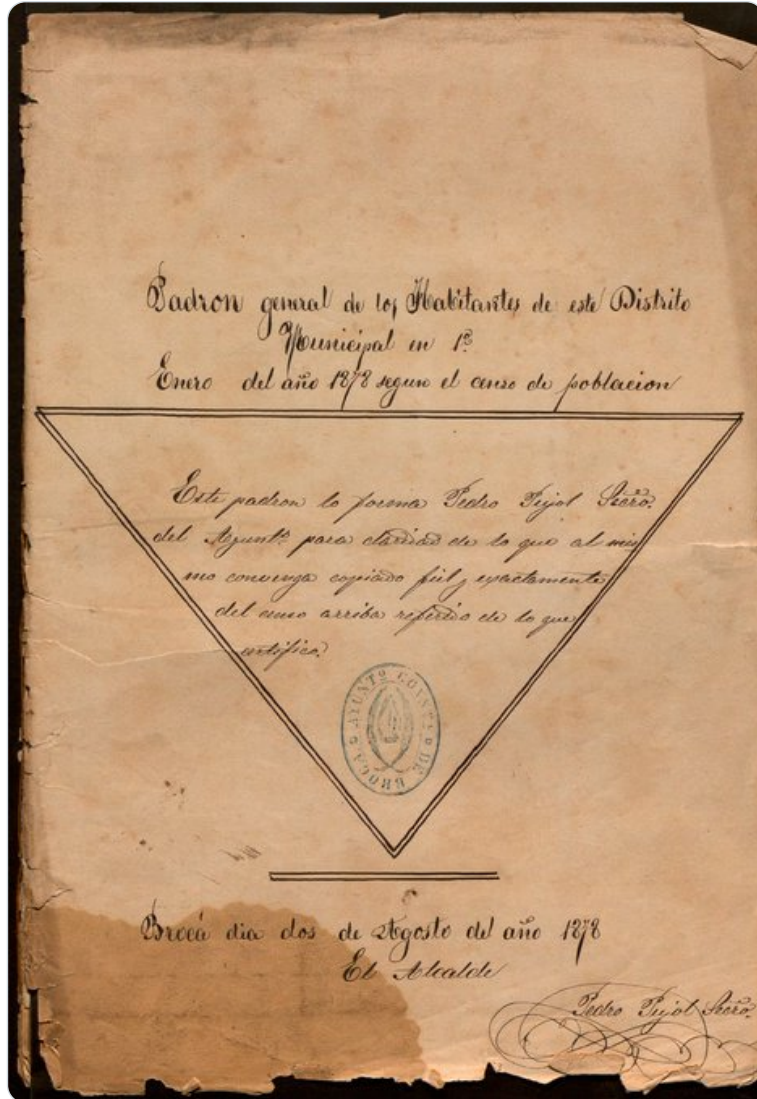 Padron general de los Habitantes de este Distrito
Municipal en 1º
Enero del año 1878 segun el censo de poblacion
Este padron lo forma Pedro Pujol Secrō.
del Ayuntº para claridad de lo que al mis
mo convenga copiado fiel y exactamente
del censo arriba referido de lo que
certifico.
AYUNTº CONSTL DE BROCÁ
Brocá dia dos de Agosto del año 1878
El Alcalde
Pedro Pujol Secrō.